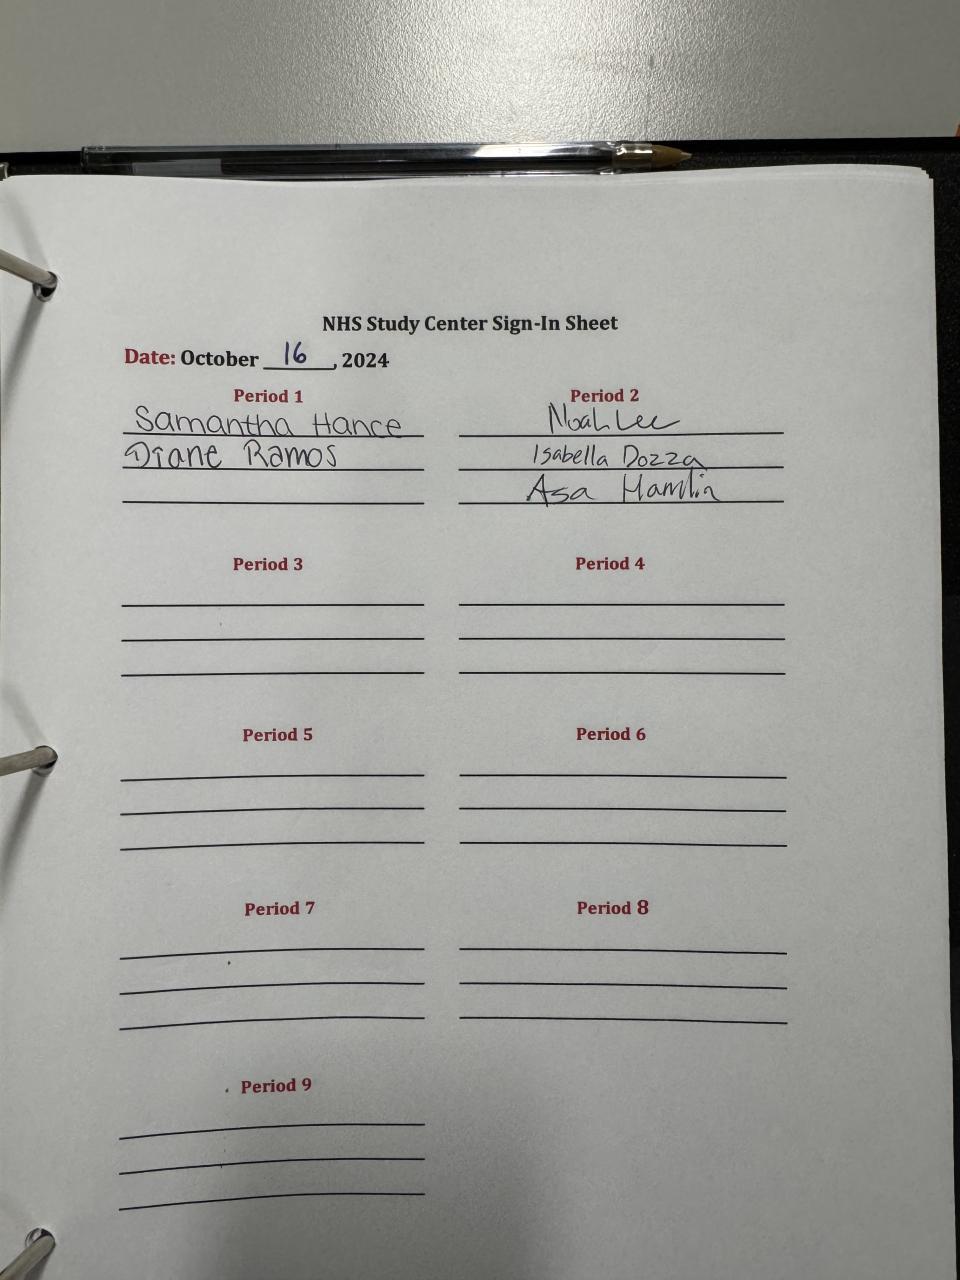 NHS Study Center Sign-In Sheet
Date: October 16, 2024
Period 1
Samantha Hance
Diane Ramos
Period 2
Noah Lee
Isabella Dozza
Asa Hamlin
Period 3
Period 4
Period 5
Period 6
Period 7
Period 8
Period 9